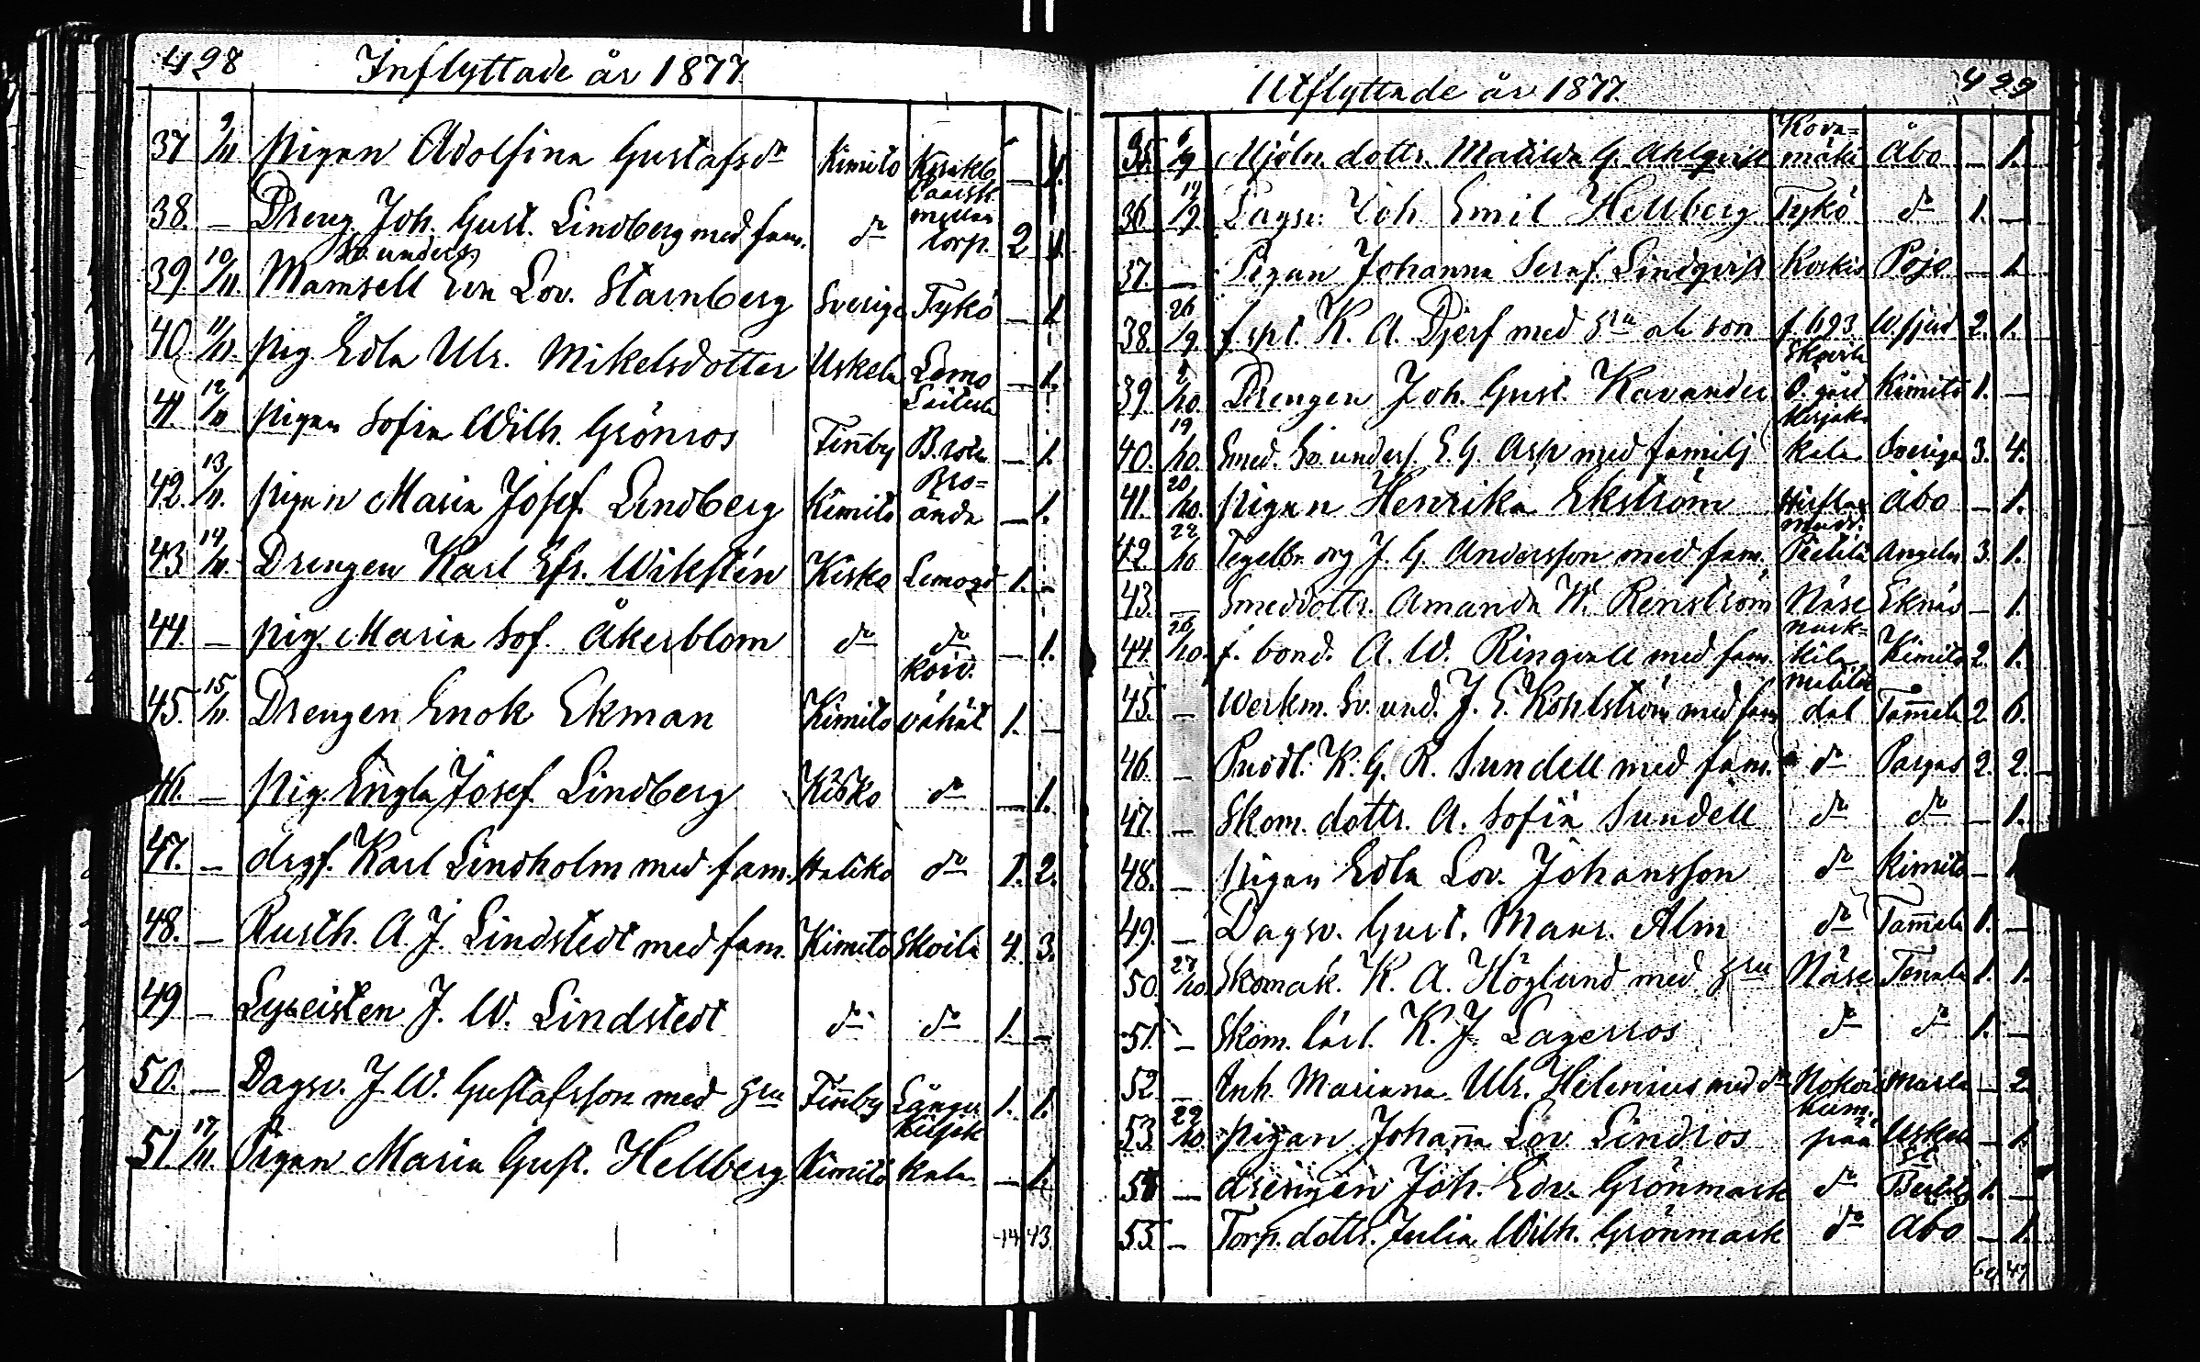 428 Inflyttade år 1877.
37 9/11 pigan Adolfina Gustafsdr Kimito Kirakb. — 1.
38. — Dreng Joh. Gust. Lindberg med fam. do mellan torp. 2 1.
Sv. unders.
39. 10/11. Mamsell Eva Lov. Starnberg Sverige Tykö — 1
40. 11/11. pig Edla Ulr. Mikelsdotter Uskela Lemo — 1.
41. 12/11 pigan Sofia Wilh. Grönros Finby — 1.
42. 13/11. pigan Maria Josef. Lindberg Kimito Bro= ånda — 1.
43 14/11. Drengen Karl Efr. Wikstén Kisko Lemogd 1. -
44. — pig. Maria Sof. Åkerblom do do — 1.
45. 15/11. Drengen Enok Ekman Kimito Koiv. vähät 1. -
46. — pig. Engla Josef. Lindberg Kisko do — 1.
47. — drgf. Karl Lindholm med fam. Haliko do 1. 2.
48. — Rusth. A. J. Lindstedt med fam. Kimito Skoila 4. 3.
49 — Lyceisten J. W. Lindstedt do do 1. -
50. — Dagsv. J. W. Gustafsson med Hru Finby 1. 1.
51. 17/11. Pigan Maria Gust. Hellberg Kimito Kirjak kala — 1.
44 43.
Utflyttade år 1877. 429
35. 6/9 Mjöln. dottr. Matilda G. Ahlqvist Kova= mäki Åbo — 1.
36 19/9. Dagsv. Joh. Emil Hellberg Tykö do 1. —
37. — Pigan Johanna Seraf. Lindqvist Kerkis Pojo — 1
38. 26/9. f. spt. K. A. Djerf med Hru och son f. 693 W. fjerd 2. 1.
39. 10. Drengen Joh. Gust. Kavander Skoila O. gård Kimito 1. —
40. 19/10. Smed. Sv. unders. E. G. Asp med familj Kirjak kala Sverige 3. 4.
41. 20/10. pigan Henrika Ekström Åbo — 1.
42 22/10 Tegelbr. org J. G. Andersson med fam. Angeln 3. 1.
43. — Smeddottr. Amanda W. Renström Näse Eknäs — 1.
44. 26/10. f. bond. A. W. Ringvall med fam. kila Kimito 2. 1.
45. — Werkm. Sv. und. J. E. Kohlström med fam Matilda dal Tammela 2. 6.
46. — Pudl. K. G. R. Sundell med fam. do Pargas 2. 2.
47. — Skom. dottr. A. Sofia Sundell do do — 1.
48. — pigan Edla Lov. Johansson do Kimito — 1
49. — Dagsv. Gust. Maur. Alm do Tammela 1. —
50. 27/10. Skomak. K. A. Höglund med Hru Näse Tenala 1. 1.
51. — Skom. lärl. K. J. Lagerros do do 1. —
52. — Inh. Marianna Ulr. Helenius med dr Marttila — 2.
53. 29/10. pigan Johanna Lov. Lindros pää Uskela — 1
54 — drengen Joh. Edv. Grönmark do St. Bertils 1. —
55. — Torp. dottr. Julia Wilh. Grönmark do Åbo — 1.
64 47